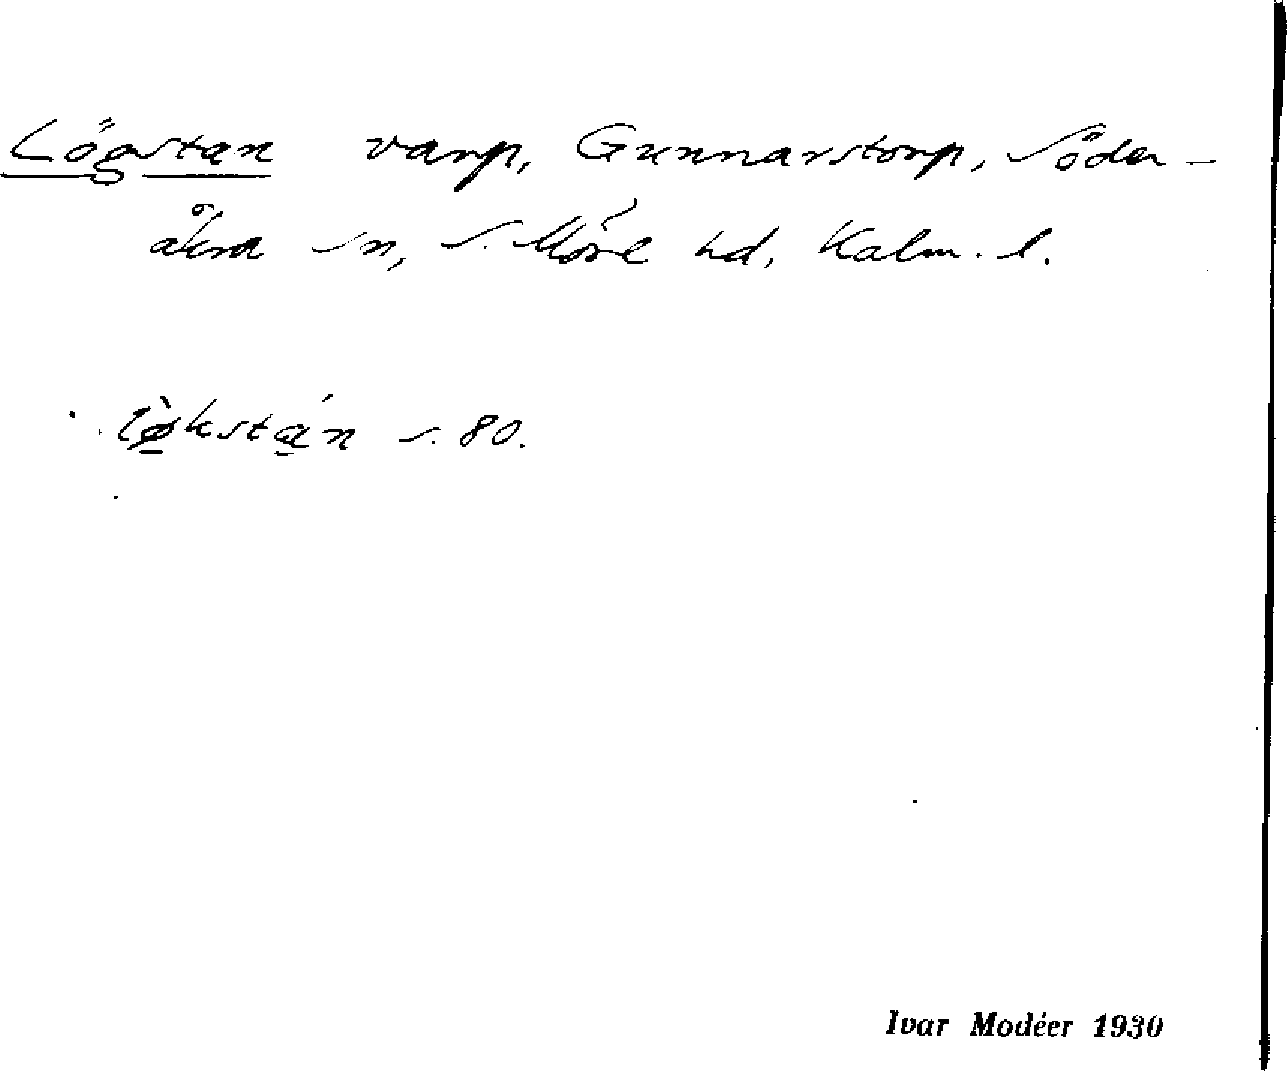 Lögstan varp, Gunnarstorp, Söder-
åkra sn, S. Möre hd, Kalm. l.
lø̀kstán s. 80.
Ivar Modéer 1930